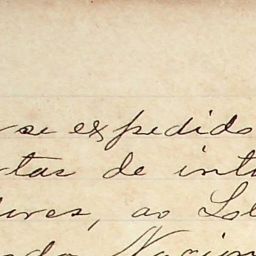 se expedido
tas de int
ores, ao Lol
do Nacion